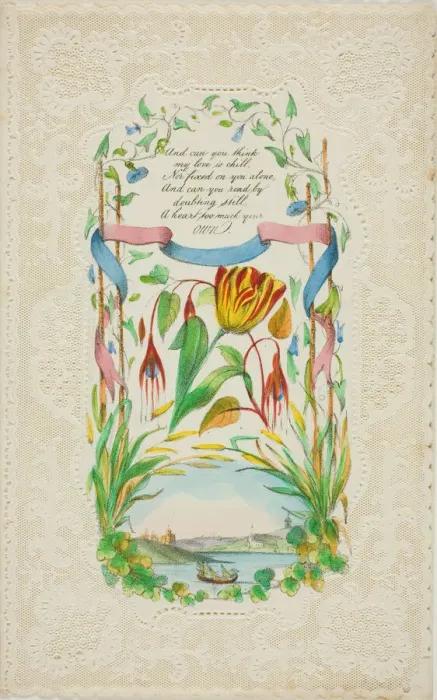 And can you think
my love is chill,
Nor fixed on you alone,
And can you read by
doubting still,
A heart too much your
own.